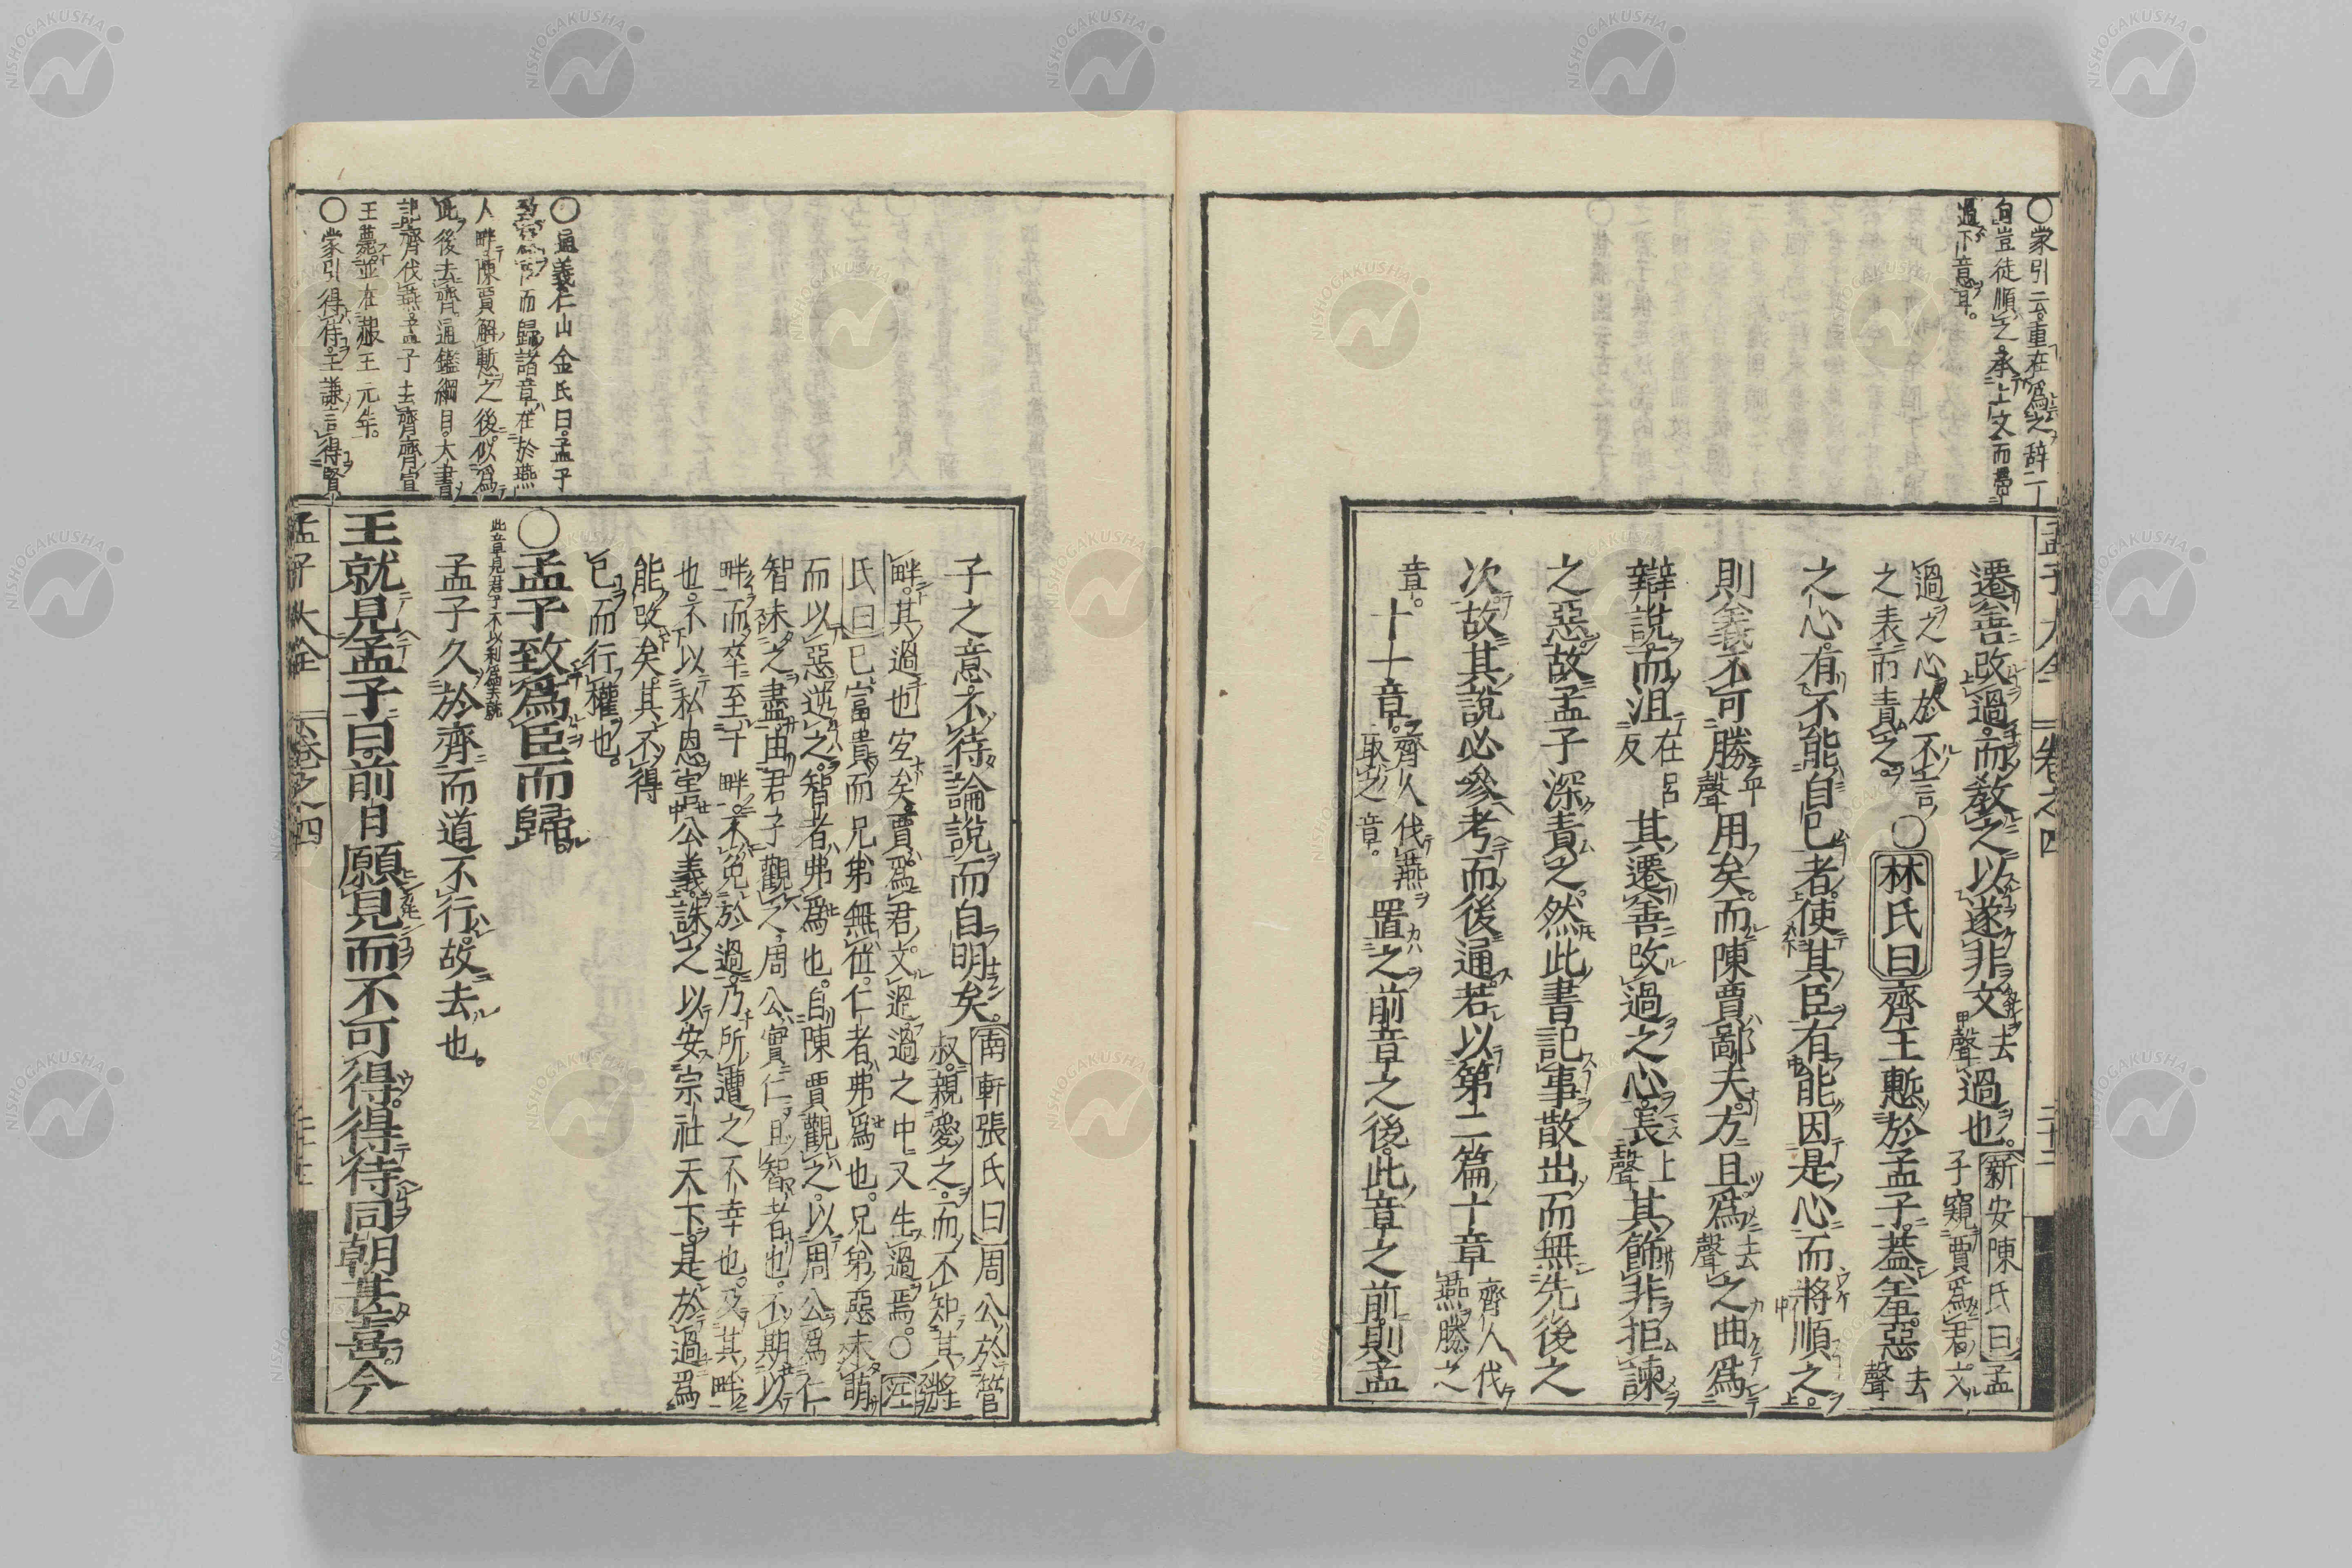 ○蒙引云重在爲之辞一
句豈徒順之承上文而
過下意耳
孟子大全 卷之四 二十二
遷善改過而敎之以遂非文去聲過也新安陳氏曰孟子窺賈爲君文
過之心於不言之表而責之○林氏曰齊王慙於孟子蓋羞惡去聲
之心有不能自已者使其臣有能因是心而將順之
則義不可勝平聲用矣而陳賈鄙夫方且爲去聲之曲爲
辯說而沮在呂反其遷善改過之心長上聲其飾非拒諫
之惡故孟子深責之然此書記事散出而無先後之
次故其說必參考而後通若以第二篇十章齊人伐燕勝之
章十一章齊人伐燕取之章置之前章之後此章之前則孟
子之意不待論說而自明矣南軒張氏曰周公於管
叔親愛之而不知其將
畔其過也宜矣賈爲君文過過之中又生過焉○汪
氏曰已富貴而兄弟無位仁者弗爲也兄弟惡未萌
而以惡逆之智者弗爲也自陳賈觀之以周公爲仁
智未之盡由君子觀之周公實仁且智者也不期以
畔而卒至于畔不免於過乃所遭之不幸也及其畔
也不以私恩害公義誅之以安宗社天下是於過爲
能改矣其不得
已而行權也
○孟子致爲臣而歸
此章見君子不以利爲去就
孟子久於齊而道不行故去也
王就見孟子曰前日願見而不可得得侍同朝甚喜今
○通義仁山金氏曰孟子
致爲臣而歸諸章在於燕
人畔陳賈解慙之後似爲
此後去齊通鑑綱目大書
記齊伐燕孟子去齊齊宣
王薨並在赧王元年
○蒙引得侍王謙言得賢
孟子大全 卷之四